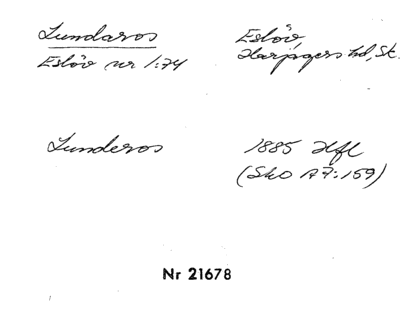 Lundaros
Eslöv,
Eslöv nr 1:74
Harjagers hd, Sk.
Lunderos
1885 Hfl
(SkO A7:159)
Nr 21678